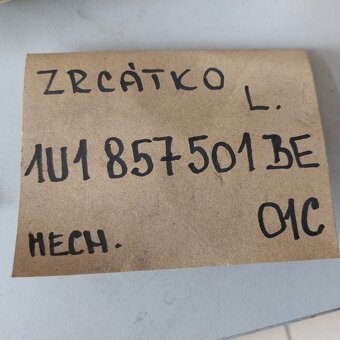 ZRCÁTKO
L.
1U1 857 501 BE
MECH. 01C